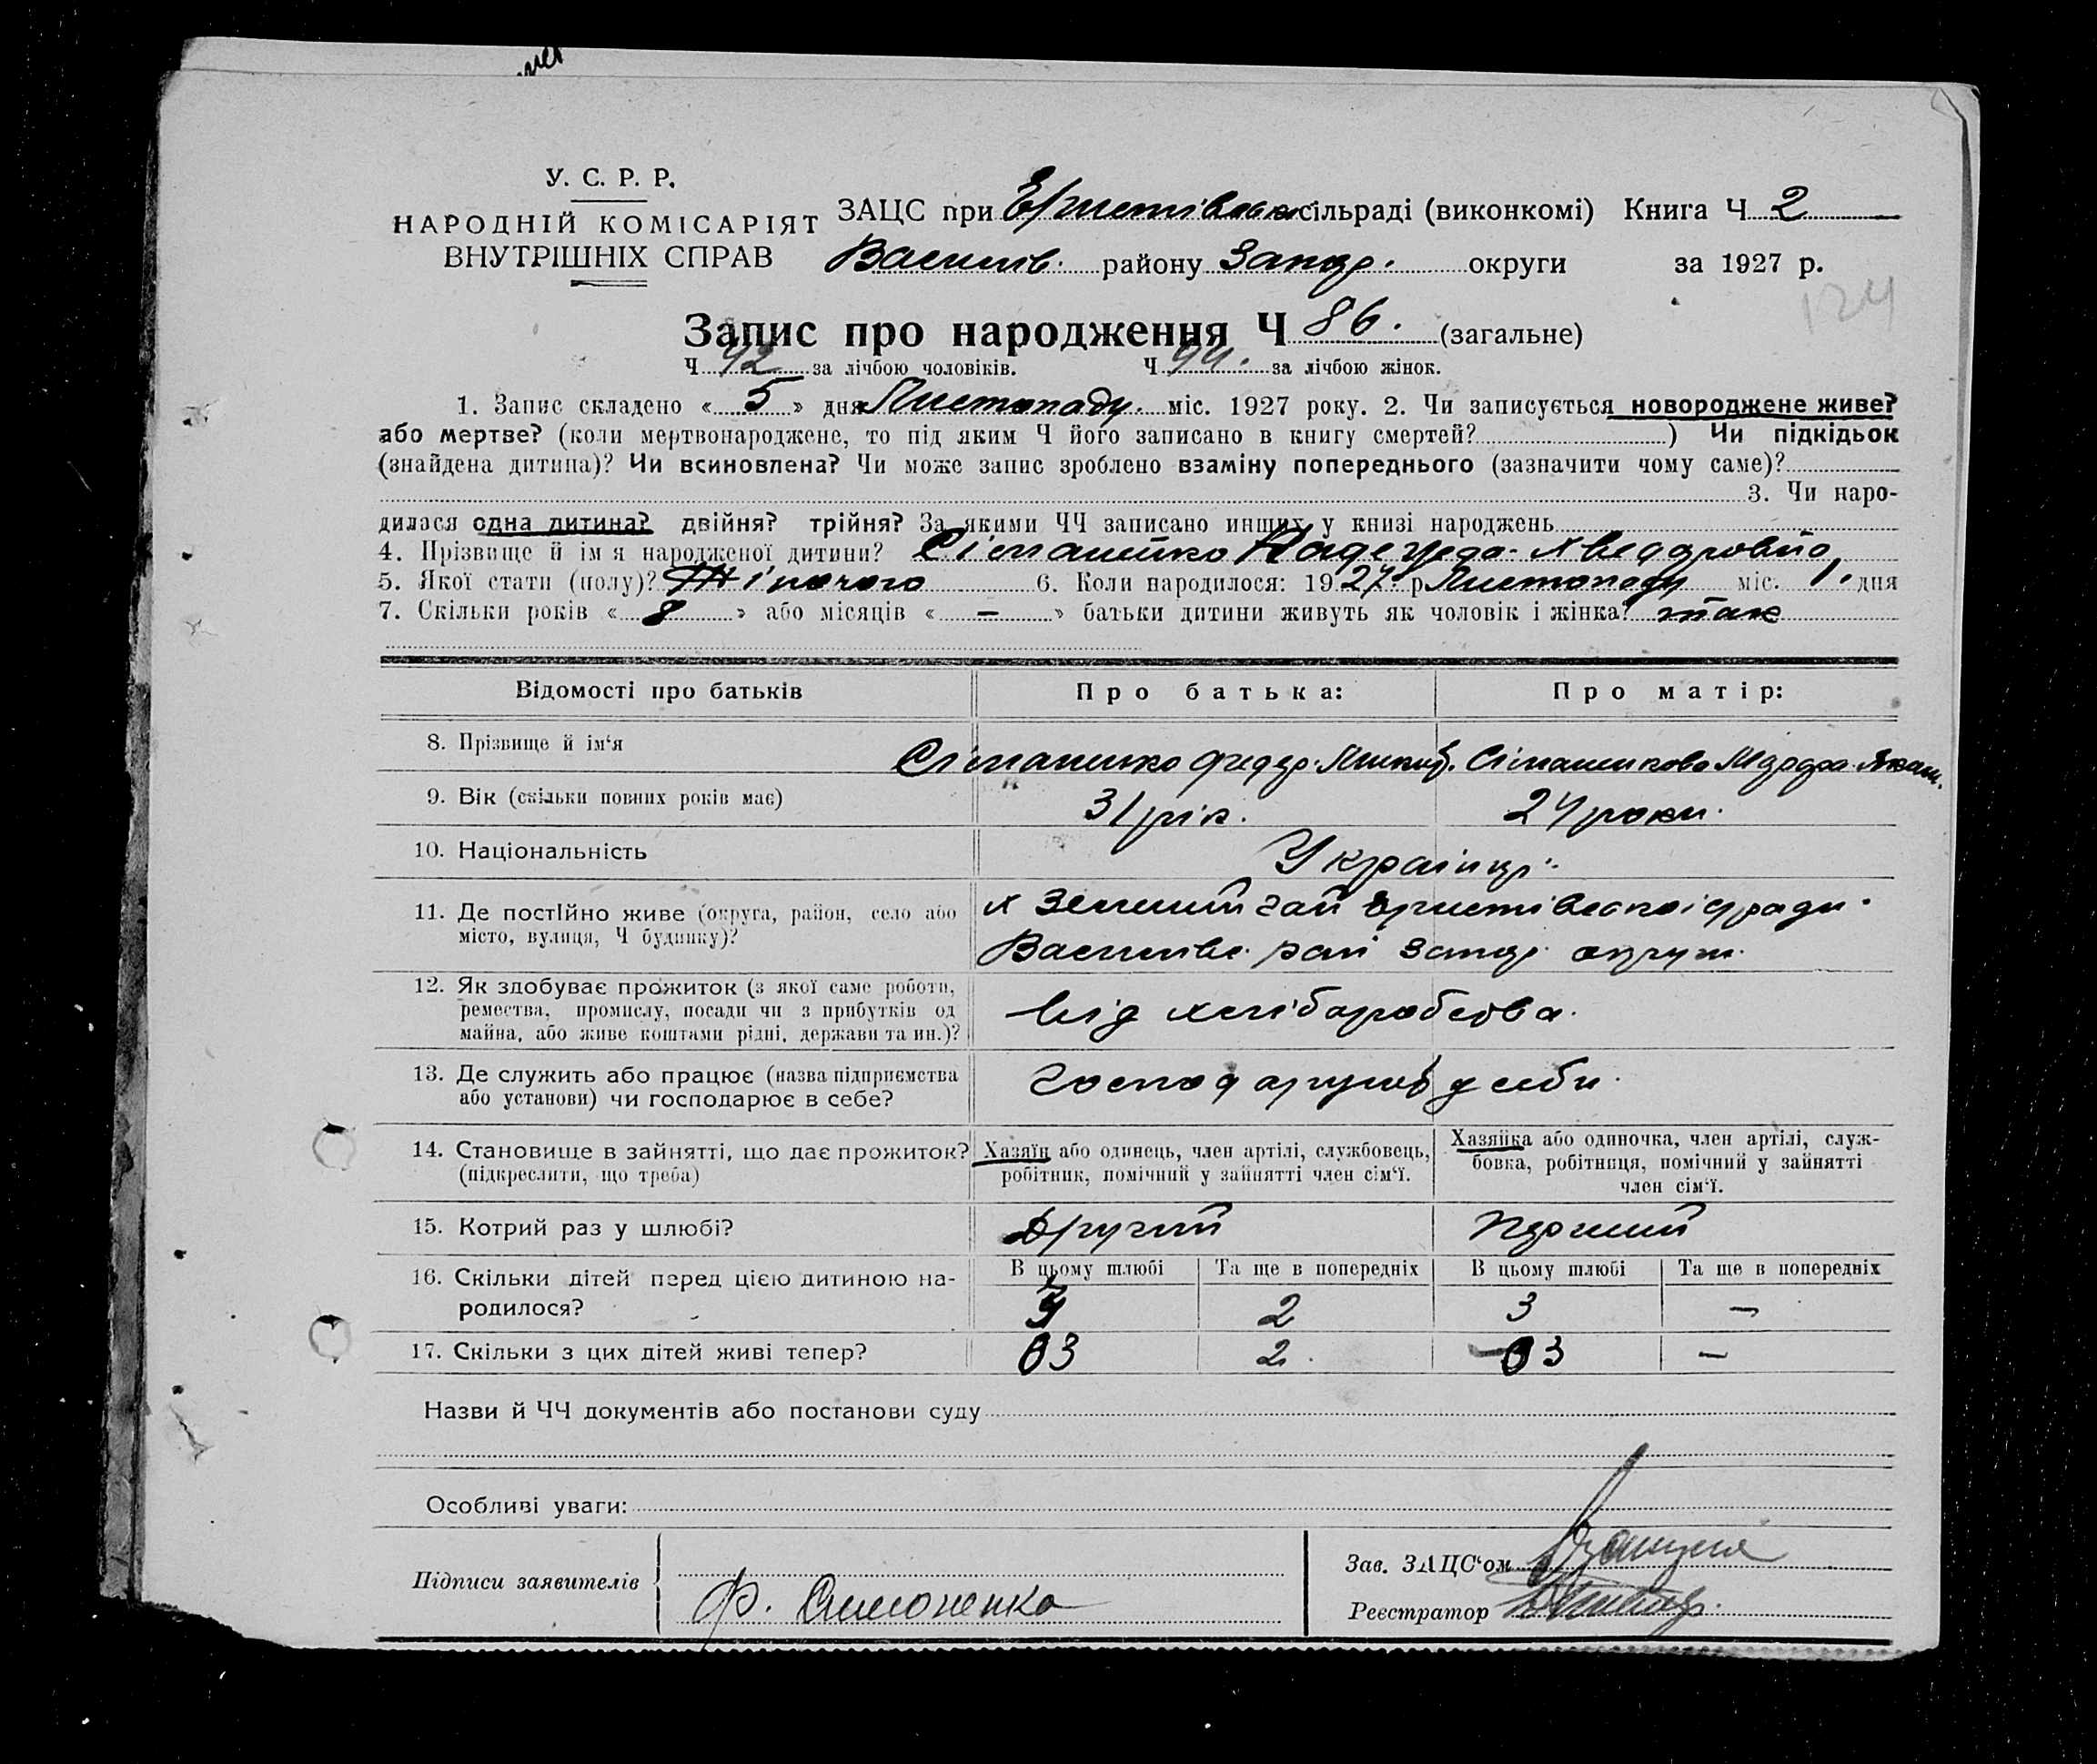 У. С. Р. Р.
НАРОДНІЙ КОМІСАРІЯТ
ВНУТРІШНІХ СПРАВ
ЗАЦС при Ористівськ. сільраді (виконкомі) Книга Ч 2
Василів. району Запор. округи за 1927 р.
124
Запис про народження Ч 86. (загальне)
Ч 42 за лічбою чоловіків. Ч 44. за лічбою жінок.
1. Запис складено « 5 » дня Листопаду. міс. 1927 року. 2. Чи записується новороджене живе?
або мертве? (коли мертвонароджене, то під яким Ч його записано в книгу смертей? ) Чи підкідьок
(знайдена дитина)? Чи всиновлена? Чи може запис зроблено взаміну попереднього (зазначити чому саме)?
3. Чи наро-
дилася одна дитина? двійня? трійня? За якими ЧЧ записано инших у книзі народжень
4. Прізвище й ім я народженої дитини? Надежда
5. Якої стати (полу)? Жіночого 6. Коли народилося: 1927 р Листопаду міс. 1. дня
7. Скільки років « 8 » або місяців « — » батьки дитини живуть як чоловік і жінка? так
Відомості про батьків Про батька: Про матір:
8. Прізвище й ім‘я
9. Вік (скільки повних років має) 31 рік. 24 роки.
10. Національність Українці
11. Де постійно живе (округа, район, село або
місто, вулиця, Ч будинку)?
х Зелений гай ради.
Василівс. рай Запор. округи.
12. Як здобуває прожиток (з якої саме роботи,
ремества, промислу, посади чи з прибутків од
майна, або живе коштами рідні, держави та ин.)?
від хліборобства.
13. Де служить або працює (назва підприємства
або установи) чи господарює в себе?
господарують у себе.
14. Становище в зайнятті, що дає прожиток?
(підкреслити, що треба)
Хазяїн або одинець, член артілі, службовець,
робітник, помічний у зайнятті член сім‘ї.
Хазяйка або одиночка, член артілі, служ-
бовка, робітниця, помічний у зайнятті
член сім‘ї.
15. Котрий раз у шлюбі? Другий Перший
16. Скільки дітей перед цією дитиною на-
родилося?
В цьому шлюбі Та ще в попередніх В цьому шлюбі Та ще в попередніх
2 3 —
17. Скільки з цих дітей живі тепер? 3 2. 3 —
Назви й ЧЧ документів або постанови суду
Особливі уваги:
Підписи заявителів
Ф. Симоненко
Зав. ЗАЦС‘ом
Реєстратор